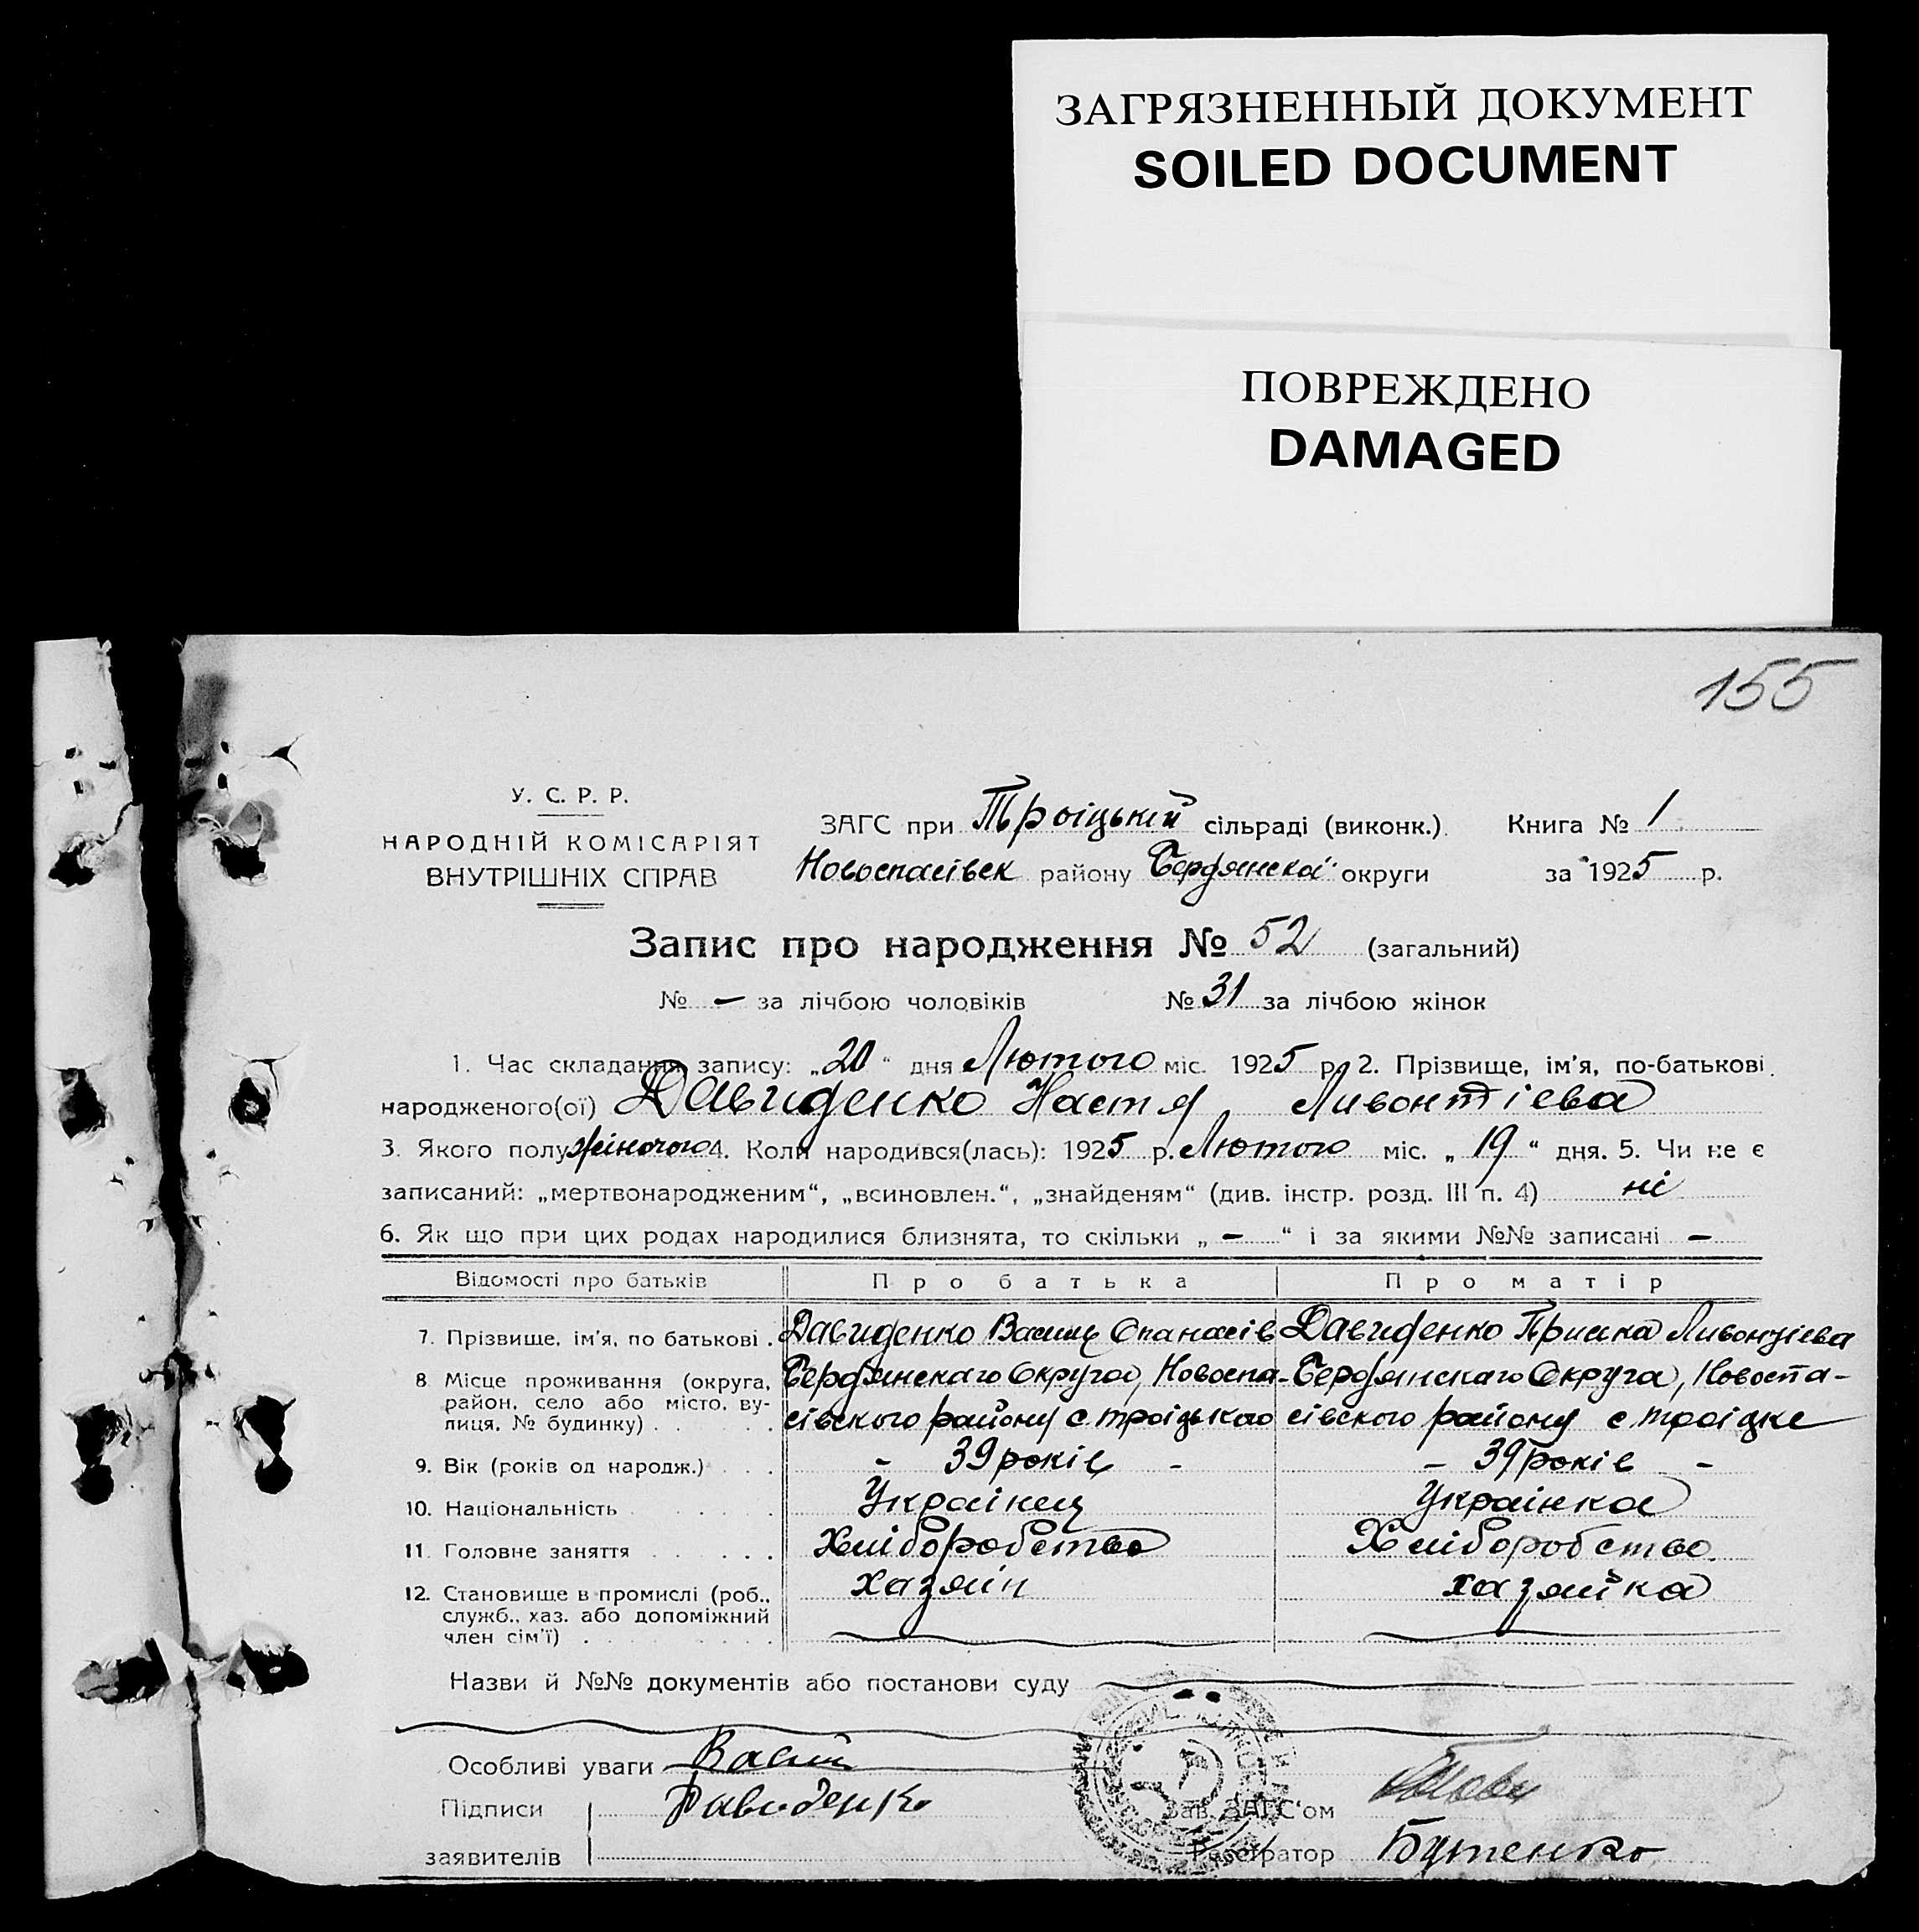 ЗАГРЯЗНЕННЫЙ ДОКУМЕНТ
SOILED DOCUMENT
ПОВРЕЖДЕНО
DAMAGED
155
У. С. Р. Р.
НАРОДНІЙ КОМІСАРІЯТ
ВНУТРІШНІХ СПРАВ
ЗАГС при Троіцькій сільраді (виконк.). Книга № 1
Новоспасівськ району Бердянської округи за 1925 р.
Запис про народження № 52 (загальний)
№ – за лічбою чоловіків № 31 за лічбою жінок
1. Час складання запису: „20“ дня Лютого міс. 1925 р. 2. Прізвище, ім'я, по-батькові
народженого(ої) Давиденко Настя Ливонтіева
3. Якого полу жіночого 4. Коли народився(лась): 1925 р. Лютого міс. „19“ дня. 5. Чи не є
записаний: „мертвонародженим“, „всиновлен.“, „знайденям“ (див. інстр. розд. III п. 4) ні
6. Як що при цих родах народилися близнята, то скільки „ – “ і за якими №№ записані –
Відомості про батьків Про батька Про матір
7. Прізвище, ім'я, по батькові . Давиденко Опанасів Давиденко Ливонтіева
8 Місце проживання (округа, район, село або місто, вулиця, № будинку) . . . . .
Бердянскаго Округа, Новоспа-
сівского району с. троіцькао
Бердянскаго Округа, Новоспа-
сівского району с троіцке
9. Вік (років од народж.) . . . – 39 років – – 39 років –
10. Національність . . . . . Украінец Украінка
11. Головне заняття . . . . . . Хліборобство Хліборобство.
12. Становище в промислі (роб., служб., хаз. або допоміжний член сім'ї) . . . . . . . . . хазяін хазяйка
Назви й №№ документів або постанови суду
Особливі уваги
Підписи Давиденко Зав. ЗАГС'ом
заявителів Реєстратор Бутенко